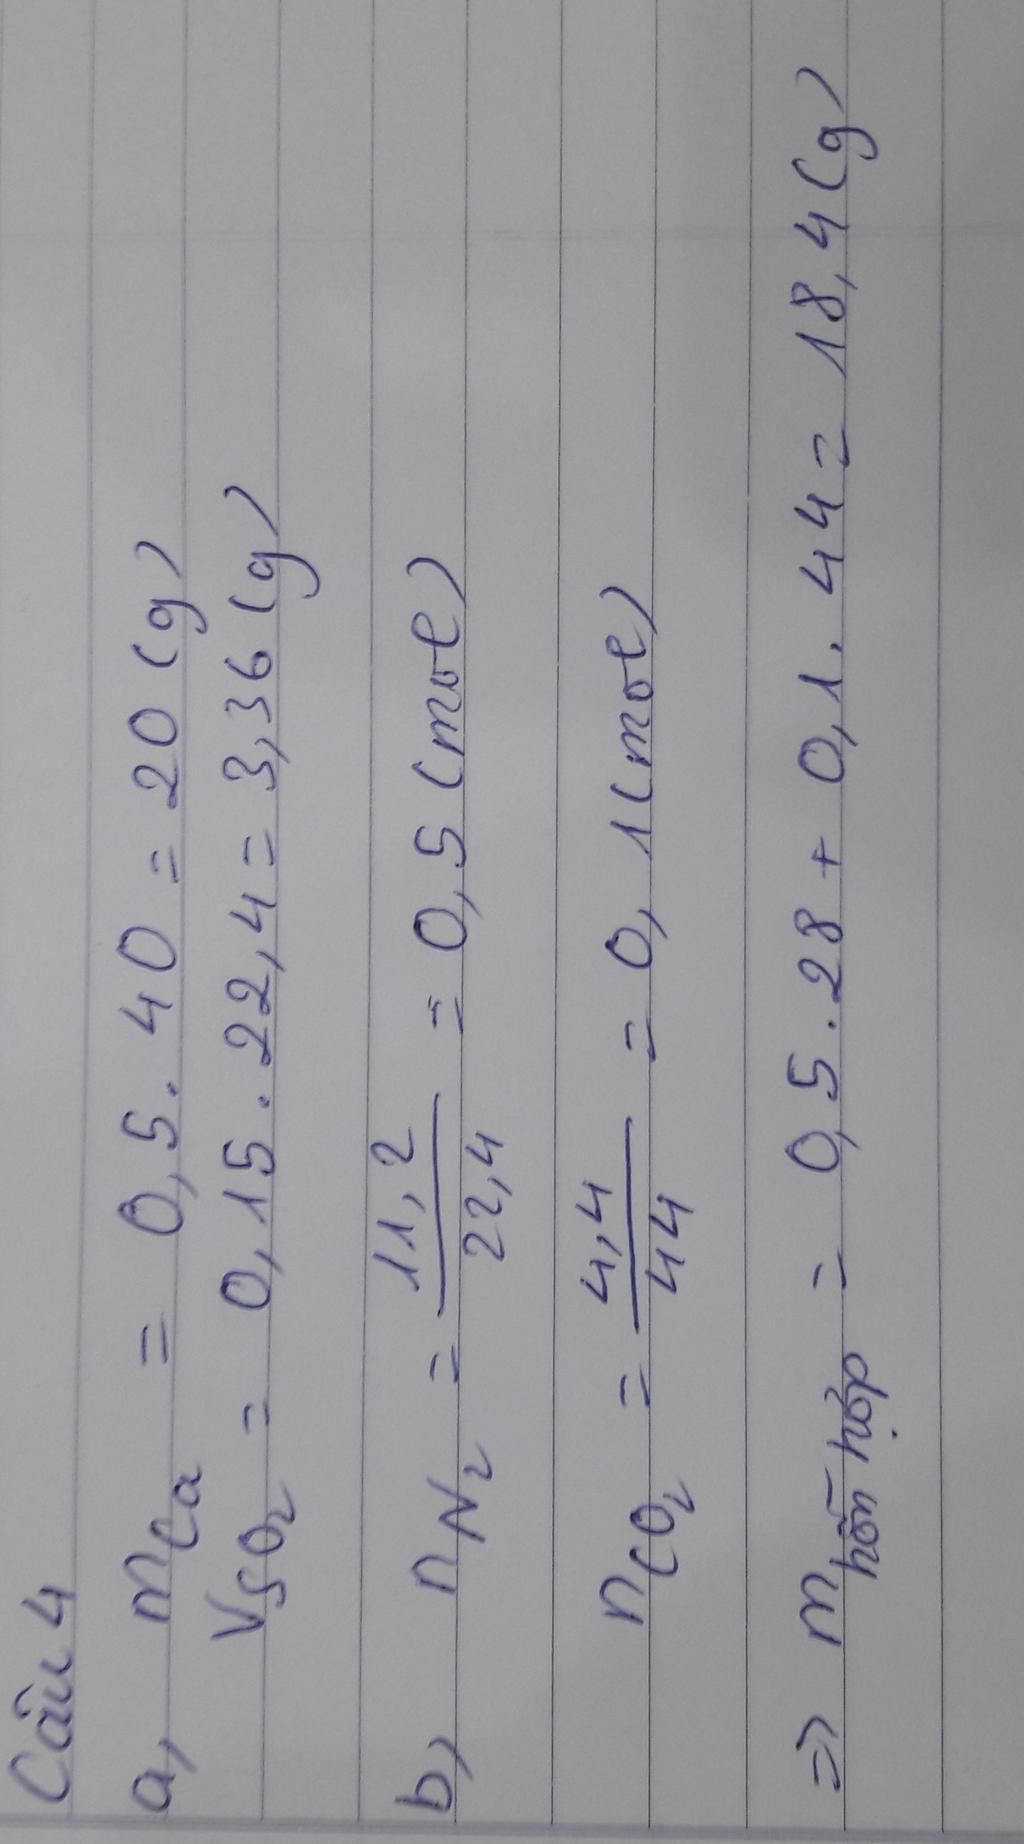 Câu 4
a, mCa = 0,5 . 40 = 20 (g)
VSO₂ = 0,15 . 22,4 = 3,36 (g)
b, nN₂ = 11,2 / 22,4 = 0,5 (mol)
nCO₂ = 4,4 / 44 = 0,1 (mol)
=> m hỗn hợp = 0,5 . 28 + 0,1 . 44 = 18,4 (g)